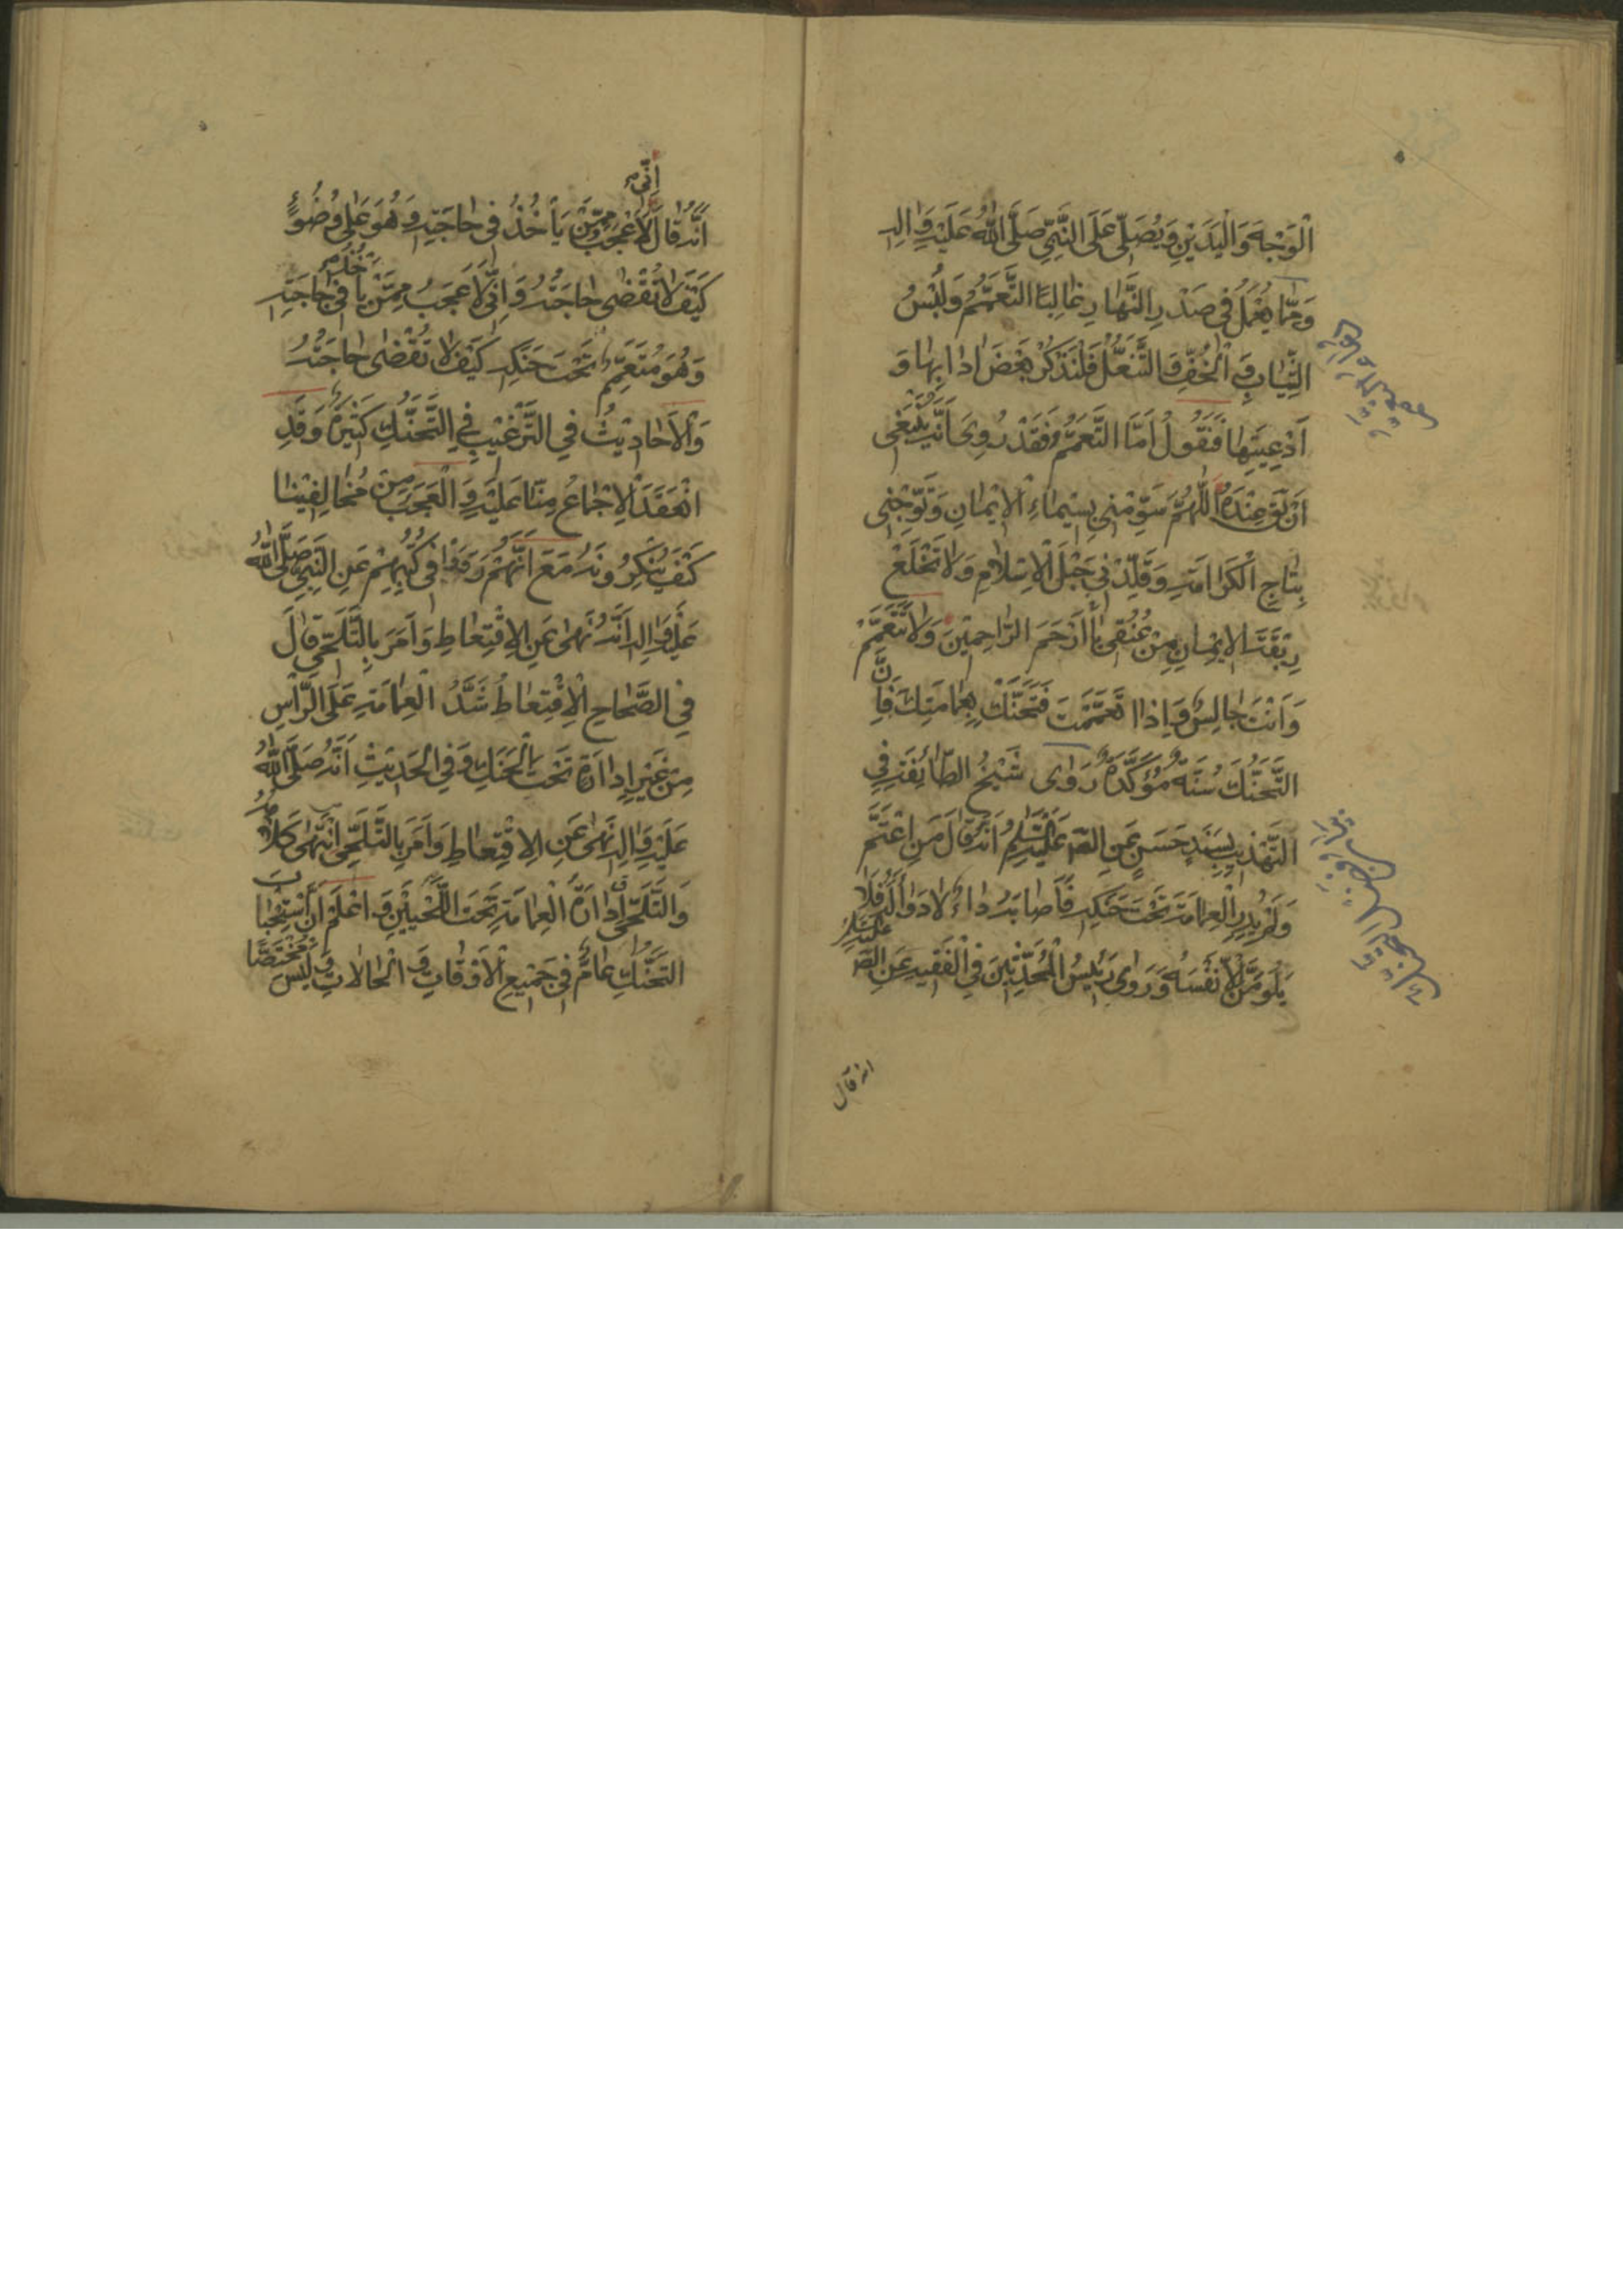 الْوَجْهَ وَالْيَدَيْنِ وَيُصَلِّي عَلَى النَّبِيِّ صَلَّى اللهُ عَلَيْهِ وَالِهِ
وَمِمَّا يُعْمَلُ فِي صَدْرِ النَّهَارِ غَالِبًا التَّعَمُّمُ وَلُبْسُ
الثِّيَابِ وَ الْخُفِّ وَ التَّنَعُّلُ فَلْنَذْكُرْ بَعْضَ ادَابِهَا وَ
اَدْعِيَتِهَا فَنَقُولُ اَمَّا التَّعَمُّمُ فَقَدْ رُوِيَ اَنَّهُ يَنْبَغِي
اَنْ يَقُولَ عِنْدَهُ اللّٰهُمَّ سَوِّمْنِي بِسِيمَاءِ الْاِيْمَانِ وَتَوِّجْنِي
بِتَاجِ الْكَرَامَةِ وَقَلِّدْنِي حَبْلَ الْاِسْلَامِ وَلَا تَخْلَعْ
رِبْقَةَ الْاِيْمَانِ مِنْ عُنُقِي يَا اَرْحَمَ الرَّاحِمِيْنَ وَلَا تَتَعَمَّمْ
وَاَنْتَ جَالِسٌ وَاِذَا تَعَمَّمْتَ فَتَحَنَّكْ بِعِمَامَتِكَ فَاِنَّ
التَّحَنُّكَ سُنَّةٌ مُؤَكَّدَةٌ رَوَى شَيْخُ الطَّائِفَةِ فِي
التَّهْذِيبِ بِسَنَدٍ حَسَنٍ عَنِ الصَّ عَلَيْهِ السَّلَامُ اَنَّهُ قَالَ مَنِ اعْتَمَّ
وَلَمْ يُدِرِ الْعِمَامَةَ تَحْتَ حَنَكِهِ فَاَصَابَهُ دَاءٌ لَا دَوَاءَ لَهُ فَلَا
يَلُومَنَّ اِلَّا نَفْسَهُ وَرَوَى رَئِيسُ الْمُحَدِّثِينَ فِي الْفَقِيهِ عَنِ الصَّ عَلَيْهِ السَّلَامُ
انه قال
اَنَّهُ قَالَ اِنِّي لَاَعْجَبُ مِمَّنْ يَأْخُذُ فِي حَاجَتِهِ وَهُوَ عَلَى وُضُوءٍ
كَيْفَ لَا تُقْضَى حَاجَتُهُ وَاِنِّي لَاَعْجَبُ مِمَّنْ يَأْخُذُ فِي حَاجَتِهِ
وَهُوَ مُتَعَمِّمٌ تَحْتَ حَنَكِهِ كَيْفَ لَا تُقْضَى حَاجَتُهُ
وَالْاَحَادِيْثُ فِي التَّرْغِيْبِ فِي التَّحَنُّكِ كَثِيْرَةٌ وَقَدِ
انْعَقَدَ الْاِجْمَاعُ مِنَّا عَلَيْهِ وَالْعَجَبُ مِنْ مُخَالِفِيْنَا
كَيْفَ يُنْكِرُونَهُ مَعَ اَنَّهُمْ رَوَوْا فِي كُتُبِهِمْ عَنِ النَّبِيِّ صَلَّى اللهُ
عَلَيْهِ وَالِهِ اَنَّهُ نَهَى عَنِ الْاِقْتِعَاطِ وَاَمَرَ بِالتَّلَحِّي قَالَ
فِي الصَّحَاحِ الْاِقْتِعَاطُ شَدُّ الْعِمَامَةِ عَلَى الرَّاْسِ
مِنْ غَيْرِ اِدَارَةٍ تَحْتَ الْحَنَكِ وَفِي الْحَدِيْثِ اَنَّهُ صَلَّى اللهُ
عَلَيْهِ وَالِهِ نَهَى عَنِ الْاِقْتِعَاطِ وَاَمَرَ بِالتَّلَحِّي انْتَهَى كَلَامُهُ
وَالتَّلَحِّي اِدَارَةُ الْعِمَامَةِ تَحْتَ اللَّحْيَيْنِ وَ اعْلَمْ اَنَّ اسْتِحْبَابَ
التَّحَنُّكِ عَامٌّ فِي جَمِيْعِ الْاَوْقَاتِ وَ الْحَالَاتِ وَ لَيْسَ مُخْتَصًّا